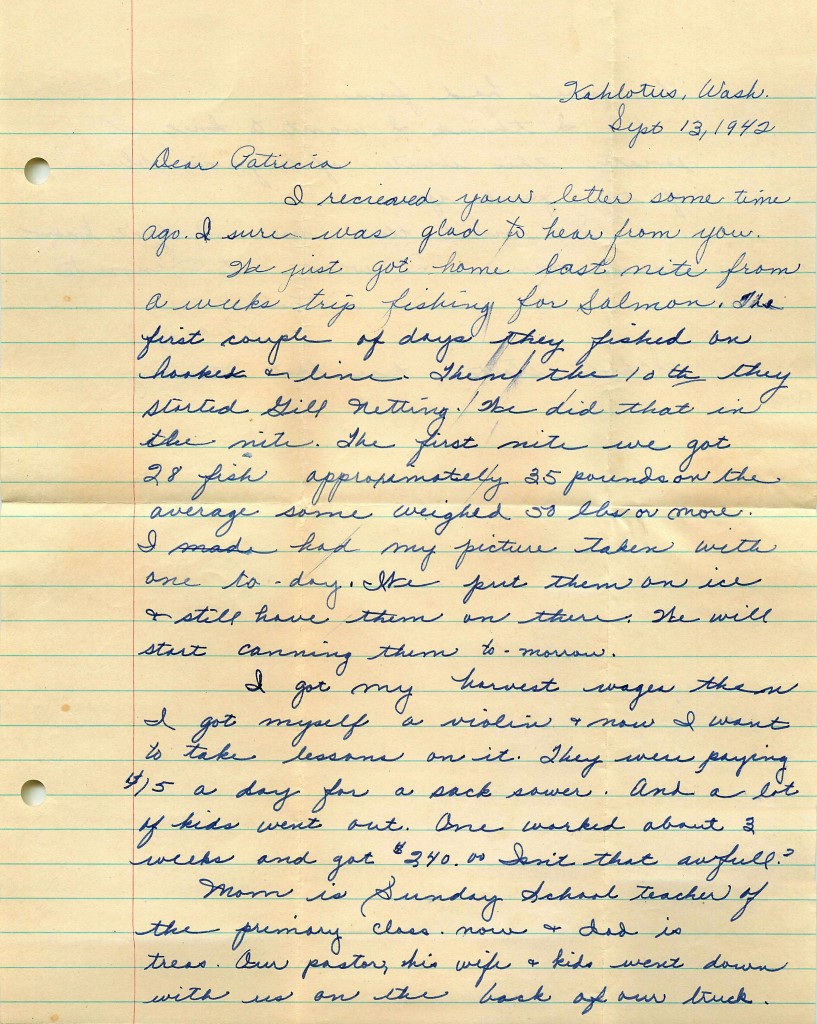 Kahlotus, Wash.
Sept 13, 1942
Dear Patricia
I recieved your letter some time
ago. I sure was glad to hear from you.
We just got home last nite from
a weeks trip fishing for Salmon. The
first couple of days they fished on
hooked & line. Then the 10th they
started Gill Netting. We did that in
the nite. The first nite we got
28 fish approximately 35 pounds on the
average some weighed 50 lbs or more.
I made had my picture taken with
one to-day. We put them on ice
& still have them on there. We will
start canning them to-morrow.
I got my harvest wages then
I got myself a violin & now I want
to take lessons on it. They were paying
$15 a day for a sack sower. And a lot
of kids went out. One worked about 3
weeks and got $240.00 Isn't that awfull?
Mom is Sunday School teacher of
the primary class. now & Dad is
treas. Our pastor, his wife & kids went down
with us on the back of our truck.